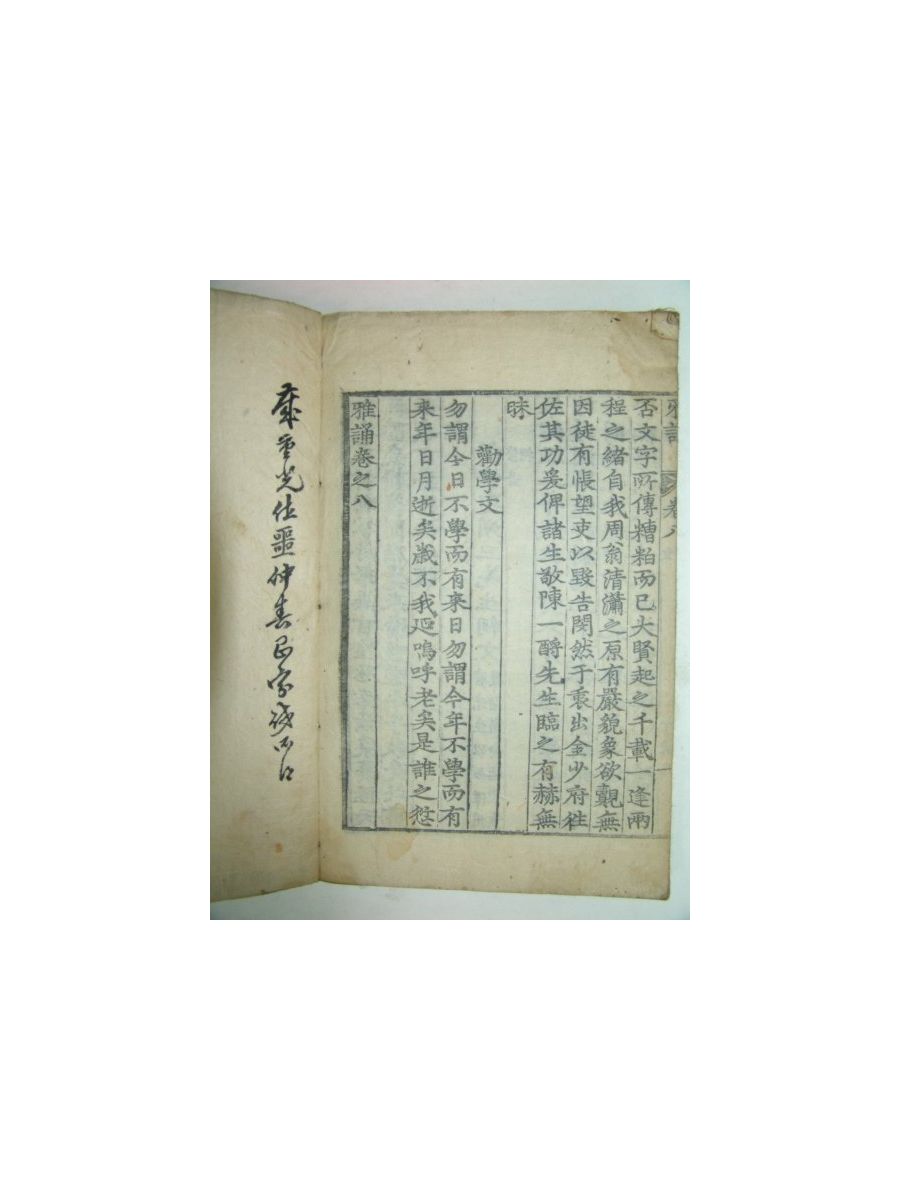 雅誦 卷八
否文字所傳糟粕而已大賢起之千載一逢兩
程之緒自我周翁清瀟之原有嚴貌象欲觀無
因徒有悵望吏以毀告閔然于衷出金少府往
佐其功爰俾諸生敬陳一酹先生臨之有赫無
昧
勸學文
勿謂今日不學而有来日勿謂今年不學而有
来年日月逝矣歲不我延嗚呼老矣是誰之愆
雅誦卷之八
歲重光作噩仲春